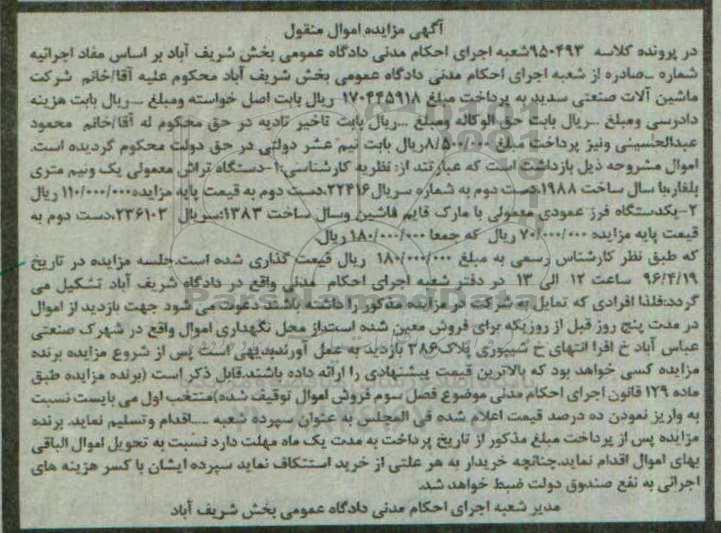 آگهی مزایده اموال منقول
در پرونده کلاسه ۹۵۰۴۹۳شعبه اجرای احکام مدنی دادگاه عمومی بخش شریف آباد بر اساس مفاد اجرائیه
شماره ...صادره از شعبه اجرای احکام مدنی دادگاه عمومی بخش شریف آباد محکوم علیه آقا/خانم شرکت
ماشین آلات صنعتی سدید به پرداخت مبلغ ۱۷۰۴۴۵۹۱۸ ریال بابت اصل خواسته ومبلغ ...ریال بابت هزینه
دادرسی ومبلغ ...ریال بابت حق الوکاله ومبلغ ...ریال بابت تاخیر تادیه در حق محکوم له آقا/خانم محمود
عبدالحسینی ونیز پرداخت مبلغ ۸/۵۰۰/۰۰۰ریال بابت نیم عشر دولتی در حق دولت محکوم گردیده است.
اموال مشروحه ذیل بازداشت است که عبارتند از: نظریه کارشناسی:۱-دستگاه تراش معمولی یک ونیم متری
بلغار،با سال ساخت ۱۹۸۸،دست دوم به شماره سریال۲۲۴۱۶،دست دوم به قیمت پایه مزایده۱۱۰/۰۰۰/۰۰۰ ریال
۲-یکدستگاه فرز عمودی معمولی با مارک قایم ماشین وسال ساخت ۱۳۸۳؛سریال ۲۳۶۱۰۳،دست دوم به
قیمت پایه مزایده ۷۰/۰۰۰/۰۰۰ ریال که جمعا ۱۸۰/۰۰۰/۰۰۰ ریال.
که طبق نظر کارشناس رسمی به مبلغ ۱۸۰/۰۰۰/۰۰۰ ریال قیمت گذاری شده است.جلسه مزایده در تاریخ
۹۶/۴/۱۹ ساعت ۱۲ الی ۱۳ در دفتر شعبه اجرای احکام مدنی واقع در دادگاه شریف آباد تشکیل می
گردد؛فلذا افرادی که تمایل به شرکت در مزایده مذکور را داشته باشند دعوت می شود جهت بازدید از اموال
در مدت پنج روز قبل از روزیکه برای فروش معین شده است،از محل نگهداری اموال واقع در شهرک صنعتی
عباس آباد خ افرا انتهای خ شیپوری پلاک۳۸۶ بازدید به عمل آورند.بدیهی است پس از شروع مزایده برنده
مزایده کسی خواهد بود که بالاترین قیمت پیشنهادی را ارائه داده باشند.قابل ذکر است (برنده مزایده طبق
ماده ۱۲۹ قانون اجرای احکام مدنی موضوع فصل سوم فروش اموال توقیف شده)منتخب اول می بایست نسبت
به واریز نمودن ده درصد قیمت اعلام شده فی المجلس به عنوان سپرده شعبه ....اقدام وتسلیم نماید. برنده
مزایده پس از پرداخت مبلغ مذکور از تاریخ پرداخت به مدت یک ماه مهلت دارد نسبت به تحویل اموال الباقی
بهای اموال اقدام نماید.چنانچه خریدار به هر علتی از خرید استنکاف نماید سپرده ایشان با کسر هزینه های
اجرائی به نفع صندوق دولت ضبط خواهد شد.
مدیر شعبه اجرای احکام مدنی دادگاه عمومی بخش شریف آباد